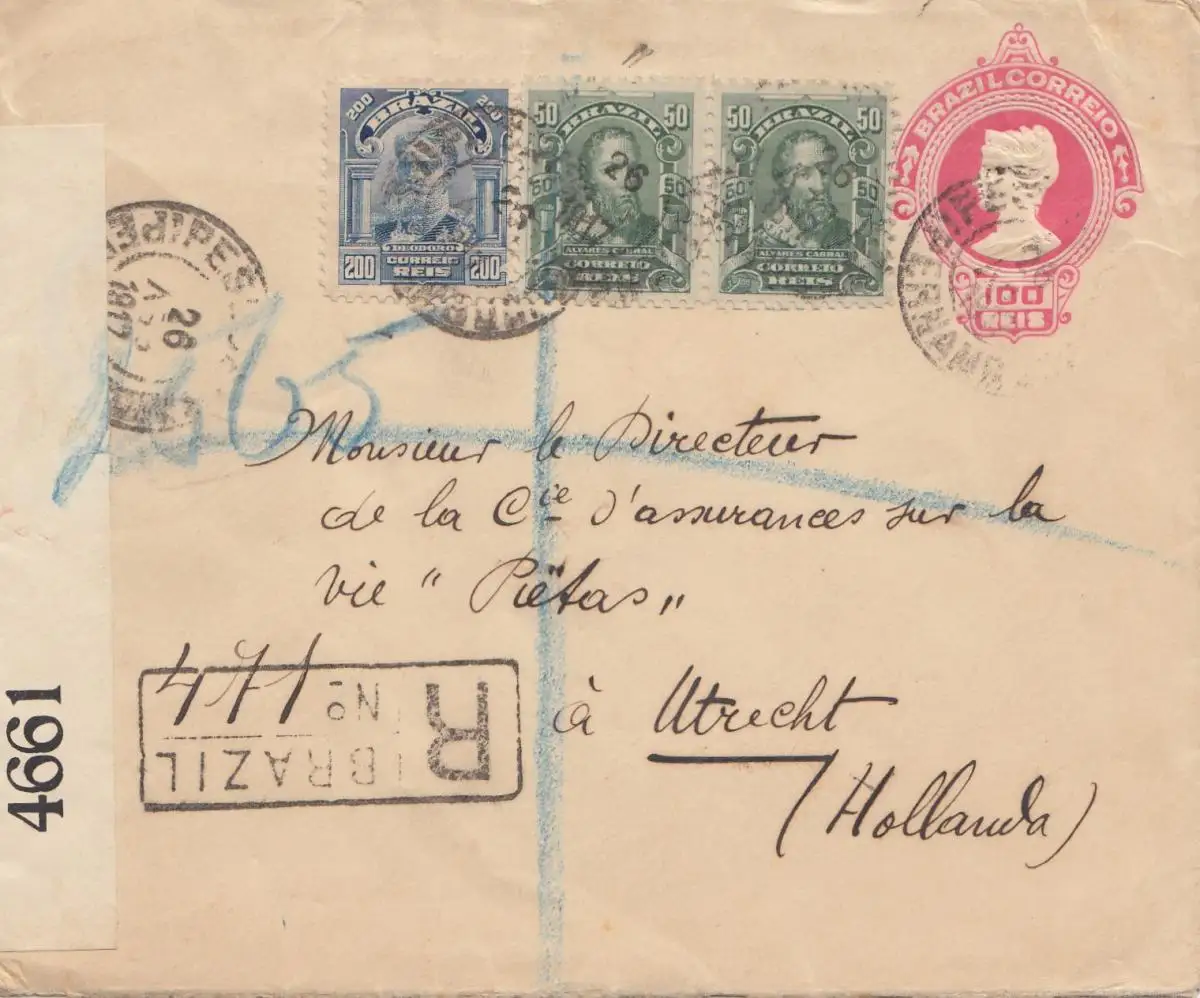 BRAZIL CORREIO
100
REIS
200 BRAZIL 200
DEODORO
CORREIO
200 REIS 200
50 BRAZIL 50
50 50
ALVARES CABRAL
CORREIO
REIS
50 BRAZIL 50
50 50
ALVARES CABRAL
CORREIO
REIS
26
1917
26
1917
26
Monsieur le Directeur
de la Cie d'assurances sur la
vie " Piëtas „
à Utrecht
(Hollanda)
R
BRAZIL
Nº 471
4661